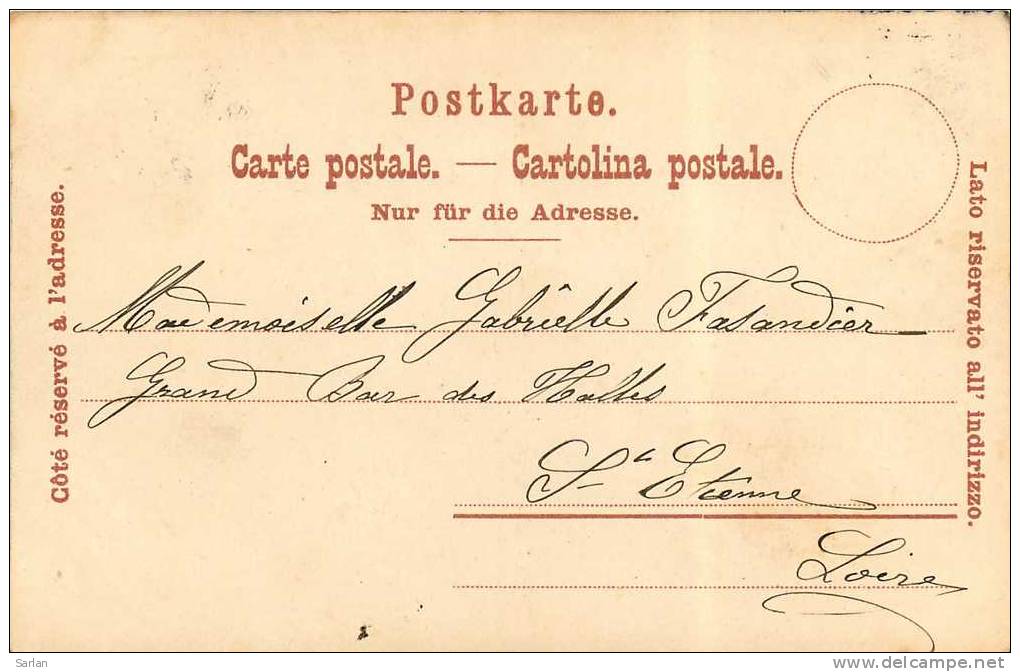 Postkarte.
Carte postale. — Cartolina postale.
Nur für die Adresse.
Côté réservé à l'adresse.
Lato riservato all' indirizzo.
Mademoiselle Gabrielle Fasandier
Grand Bar des Halles
St Etienne
Loire
Sarlan
www.delcampe.net